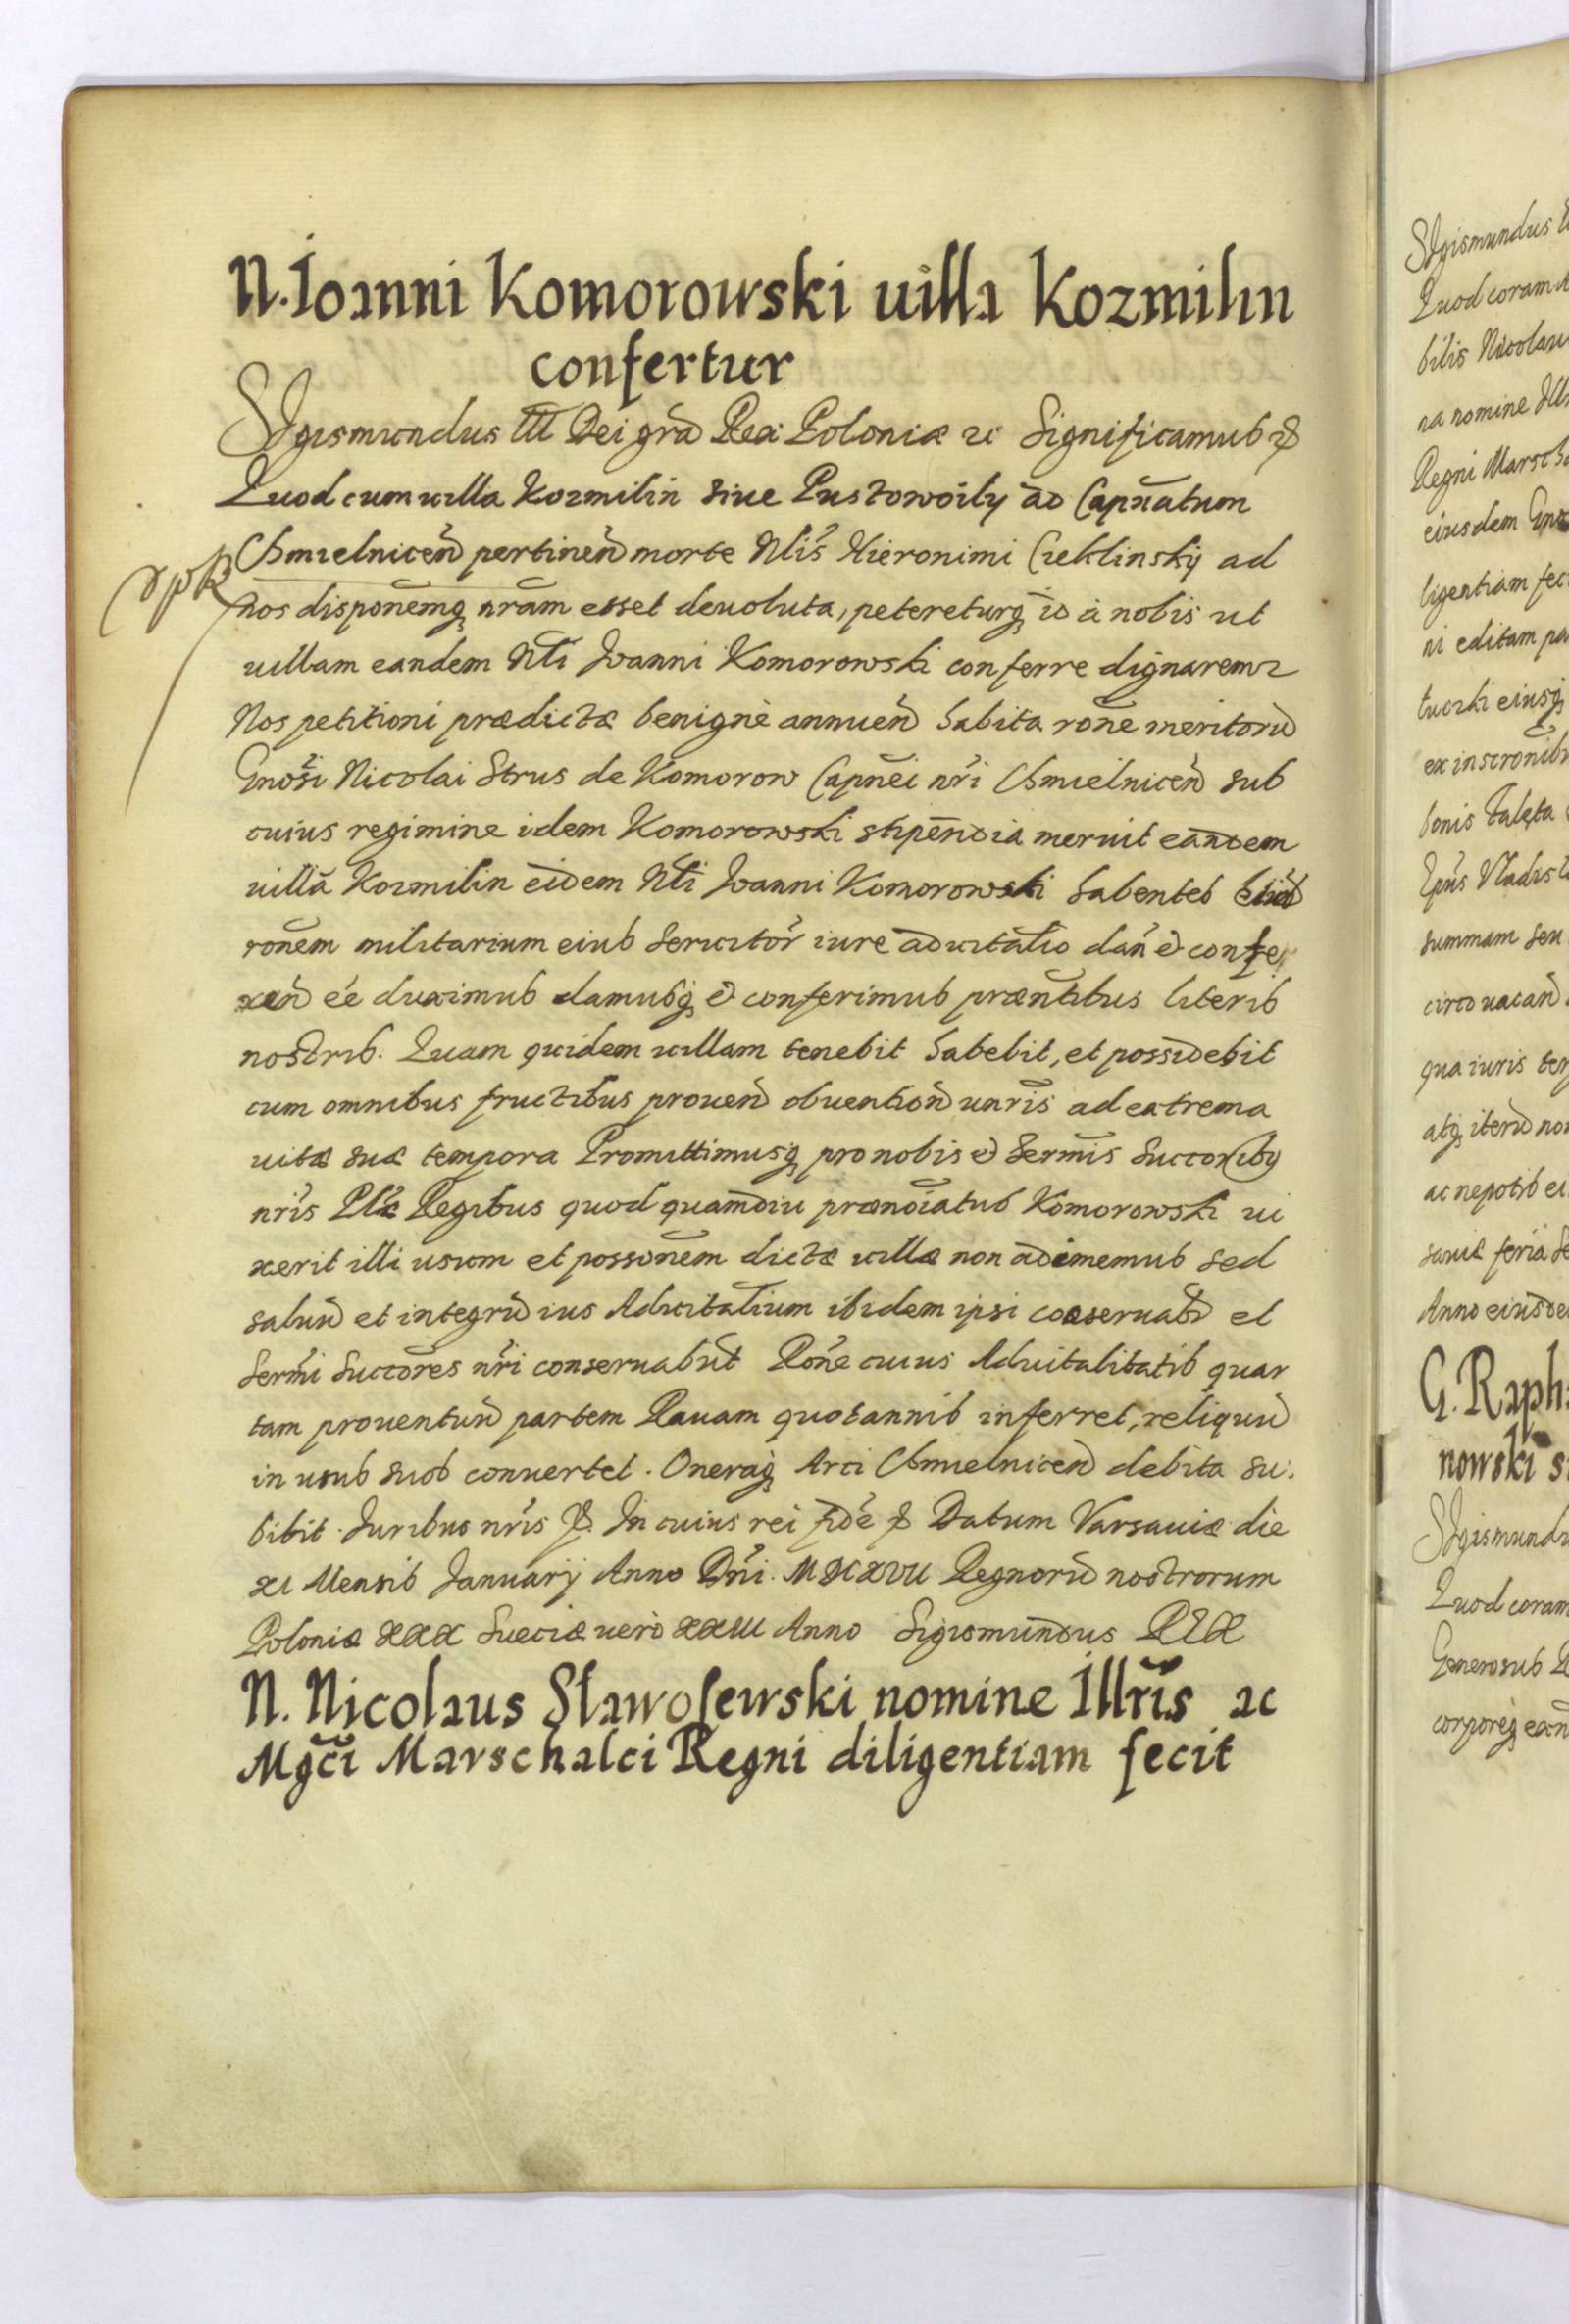 N. Ioanni Komorowski uilla Kozmilin
confertur
Sigismundus III Dei grã Rex Poloniæ ac Significamus &
Quod cum uilla Kozmilin siue Pustowoity ad Capñatum
Chmielniceñ pertineñ morte Nlis Hieronimi Cieklinskij ad
nos disponemq nram esset deuoluta, petereturq id à nobis ut
uillam eandem Nli Ioanni Komorowski conferre dignaremur
Nos petitioni prædictæ benignè annueñ habita rone meritorũ
Gnosi Nicolai Strus de Komorow Capnei nri Chmielniceñ sub
cuius regimine idem Komorowski stipendia meruit eandem
uillã Kozmilin eidem Nli Ioanni Komorowski habentes
ronem militarium eius seruitor iure aduitalio dañ et confe
reñ eé duximus damusq et conferimus præntibus literis
nostris. Quam quidem uillam tenebit habebit, et possidebit
cum omnibus fructibus proueñ obuentioñ unris ad extrema
uitæ suæ tempora Promittimusq pro nobis et Sermis Succoribq
nris Plæ Regibus quod quamdiu prænoiatus Komorowski ui
xerit illi usum et possonem dictæ uillæ non adimemus sed
saluũ et integrũ ius Aduitalium ibidem ipsi conseruabỹ et
Sermi Succores nri conseruabũt Rone cuius Aduitalitatis quar
tam prouentuũ partem Rauam quotannis inferret, reliquũ
in usus suos conuertet. Oneraq Arci Chmielniceñ debita su.
bibit. Iuribus nris &. In cuius rei fidé & Datum Varsauiæ die
XI Mensis Januarij Anno Dñi. MDCXVII Regnorũ nostrorum
Poloniæ XXX Sueciæ uerò XXIII Anno Sigismundus REX
N. Nicolaus Slawosewski nomine Illris ac
Mgci Marschalci Regni diligentiam fecit
Sigismundus
Quod coram
bilis Nicolau
na nomine Ill
Regni Marsch
eiusdem
ligentiam fec
ni editam pa
eiusq
ex inscronib
bonis
Epus Vladis
summam seu
circo uacañ
qua iuris ter
atq iterũ no
ac nepotis ei
sauiæ feria se
Anno eiusde
G. Raph
nowski s
Sigismundu
Quod coram
Generosus
corporeq ean